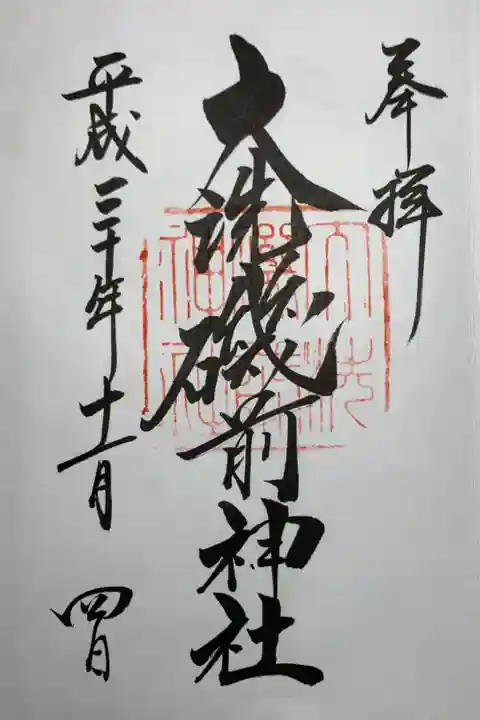 奉拝
大洗磯前神社
平成三十年十一月四日